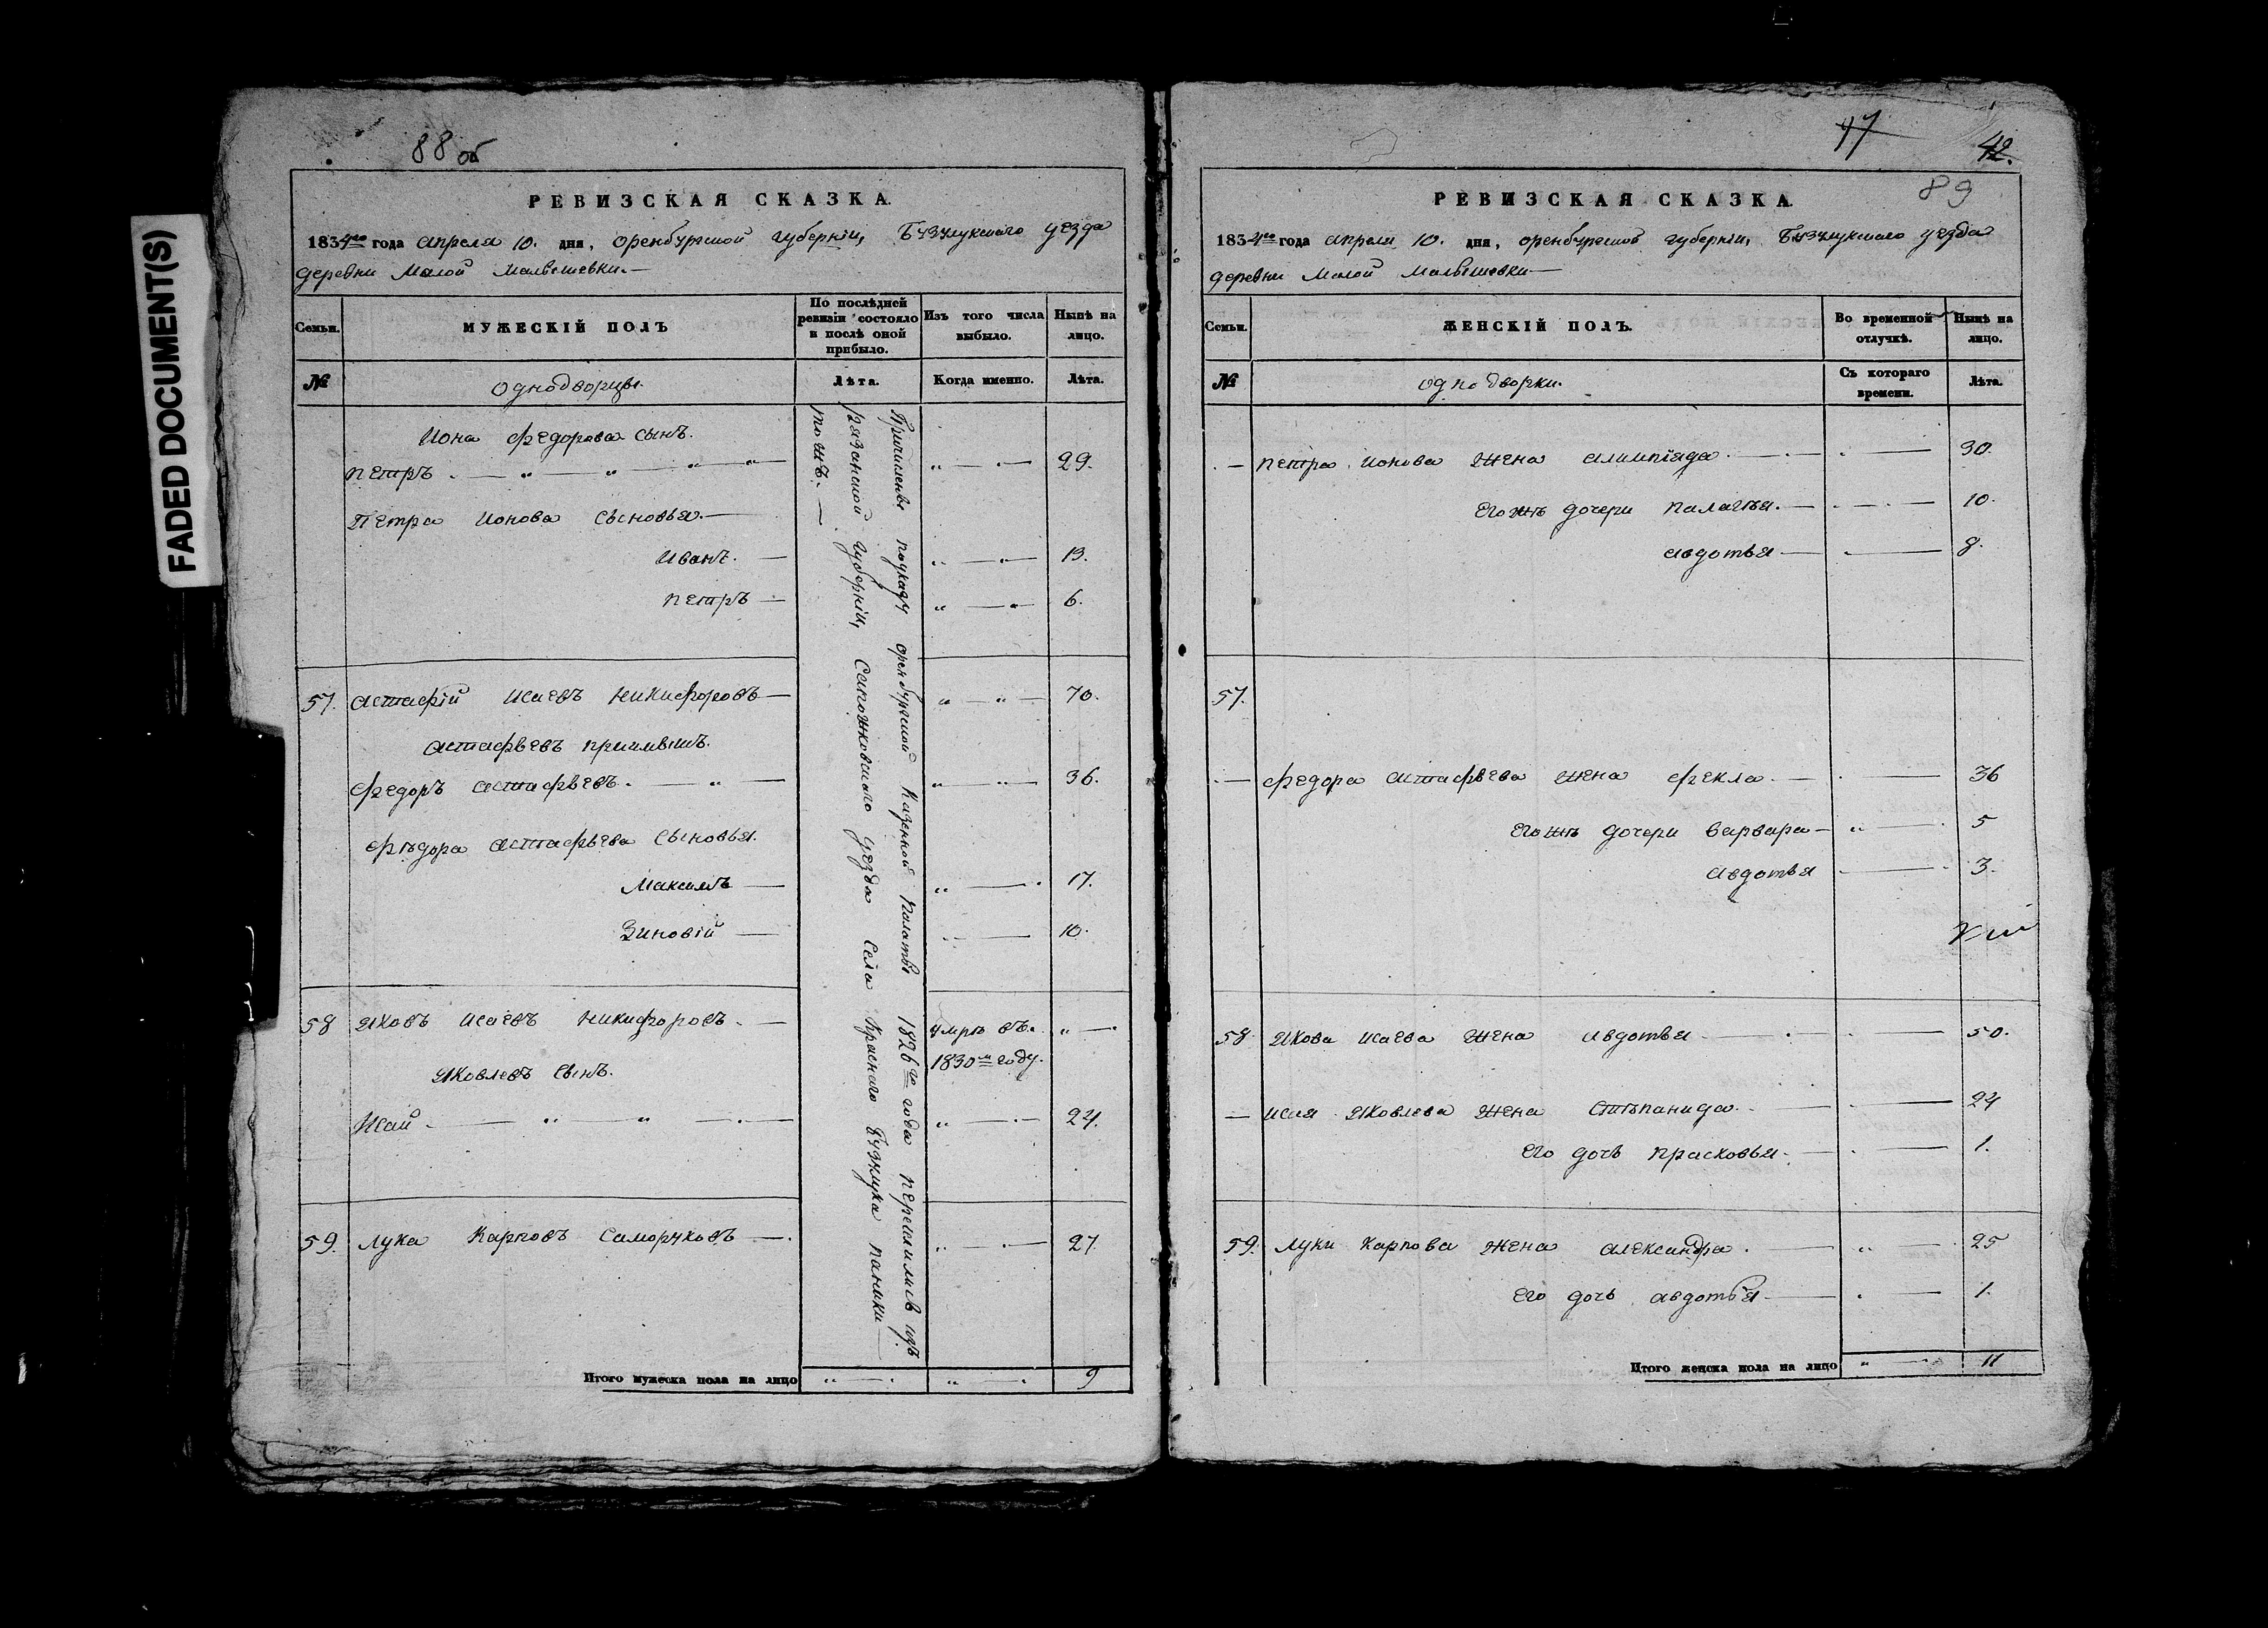 FADED DOCUMENT(S)
88 об
РЕВИЗСКАЯ СКАЗКА.
1834го года апреля 10. дня, оренбургской губернiи, Бузулукскаго уезда
деревни Малой Малышевки.—
Семьи.
МУЖЕСКIЙ ПОЛЪ
По послѣдней ревизiи состояло и послѣ оной прибыло.
Изъ того числа выбыло.
Нынѣ на лицо.
№
Однодворцы.
Лѣта.
Когда именно.
Лѣта.
Причислены поуказу оренбургской Казенной Палаты 1826го года переселились изъ
рязанской губернiи, Сапожковскаго уезда села Краснаго
тожъ.—
Иона Федорова сынъ.
Петръ 29.
Петра Ионова Сыновья.—
Иванъ.— 13.
Петръ— 6.
57. Астафiй Исаевъ Никифоровъ— 70.
Астафьевъ приимышъ.
Федоръ Астафьевъ. 36.
Федора Астафьева Сыновья.
Максимъ— 17.
Зиновiй— 10.
58 Яковъ Исаевъ Никифоровъ.— умре въ.
1830м году.
Яковлевъ Сынъ.
Исай 24.
59. Лука Карповъ Саморуковъ—. 27.
Итого мужеска пола на лицо 9
47
42.
89
РЕВИЗСКАЯ СКАЗКА.
1834го года апреля 10. дня, оренбургской губернiи, Бузулукскаго уезда
деревни Малой Малышевки—
Семьи.
ЖЕНСКIЙ ПОЛЪ.
Во временной отлучкѣ.
Нынѣ на лицо.
№
однодворки.
Съ котораго времени.
Лѣта.
Петра Ионова жена алимпiяда. 30.
Егоже дочери Палагея.— 10.
Авдотья— 8.
57.
Федора Астафьева жена Фекла.— 36
Егоже дочери Варвара— 5
Авдотья 3.
58. Якова Исаева жена Авдотья 50.
Исая Яковлева жена Степанида. 24
Его дочь Прасковья. 1.
59. Луки Карпова жена Александра. 25
Его дочь Авдотья 1.
Итого женска пола на лицо 11